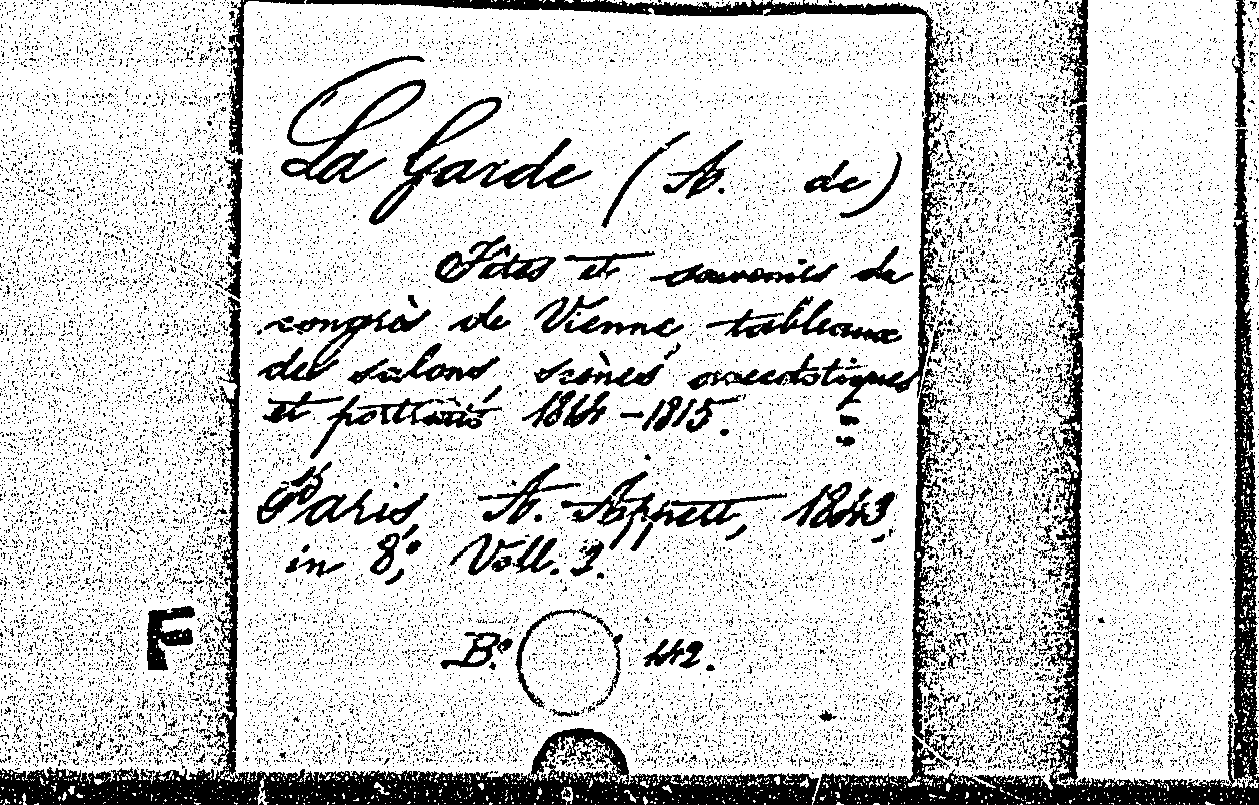 La Garde (A. de)
Fêtes et souvenirs du
congrès de Vienne tableaux
des salons, scènes anecdotiques
et portraits 1814-1815.
Paris, A. Appert, 1843,
in 8°, Voll. 2.
F
B.° 142.